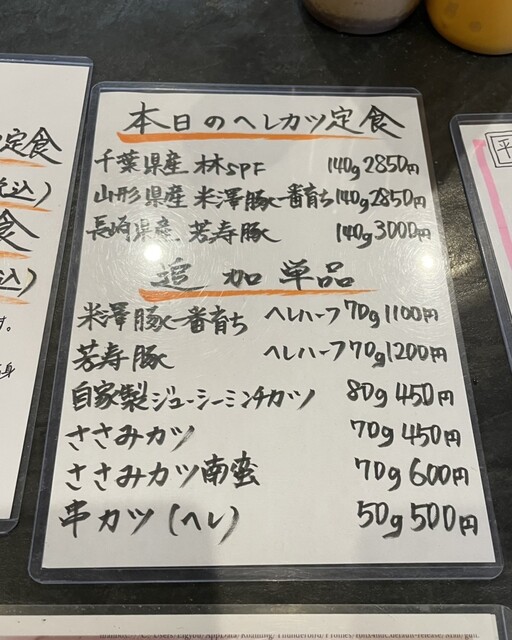 本日のヘレカツ定食
千葉県産 林SPF 140g 2850円
山形県産 米澤豚一番育ち 140g 2850円
長崎県産 若寿豚 140g 3000円
追加単品
米澤豚一番育ち ヘレハーフ 70g 1100円
若寿豚 ヘレハーフ 70g 1200円
自家製ジューシーミンチカツ 80g 450円
ささみカツ 70g 450円
ささみカツ南蛮 70g 600円
串カツ(ヘレ) 50g 500円
定食
税込)
食
込)
す。
平